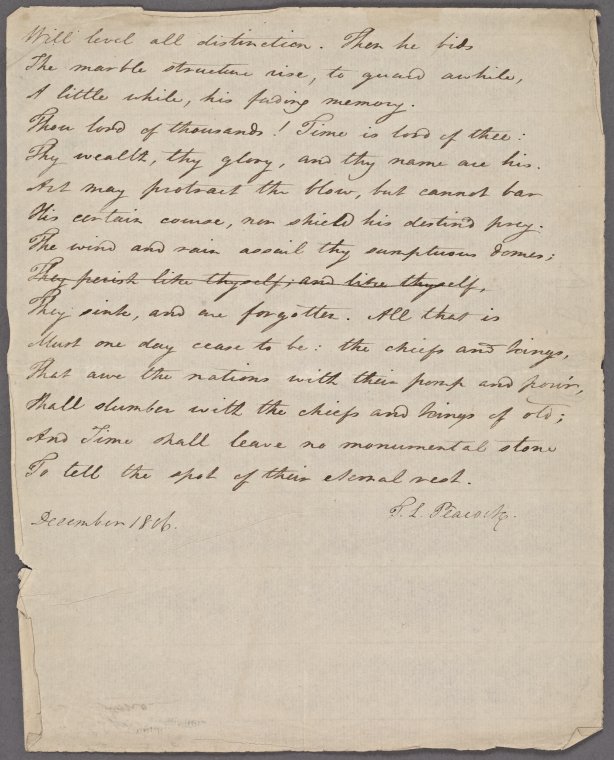 Will level all distinction. Then he bids
The marble structure rise, to guard awhile,
A little while, his fading memory.
Thou lord of thousands! Time is lord of thee:
Thy wealth, thy glory, and thy name are his.
Art may protract the blow, but cannot bar
His certain course, nor shield his destin'd prey.
The wind and rain assail thy sumptuous domes;
They perish like thyself, and like thyself,
They sink, and are forgotten. All that is
Must one day cease to be: the chiefs and kings,
That awe the nations with their pomp and pow'r,
Shall slumber with the chiefs and kings of old;
And Time shall leave no monumental stone
To tell the spot of their eternal rest.
December 1806.
T. L. Peacock.